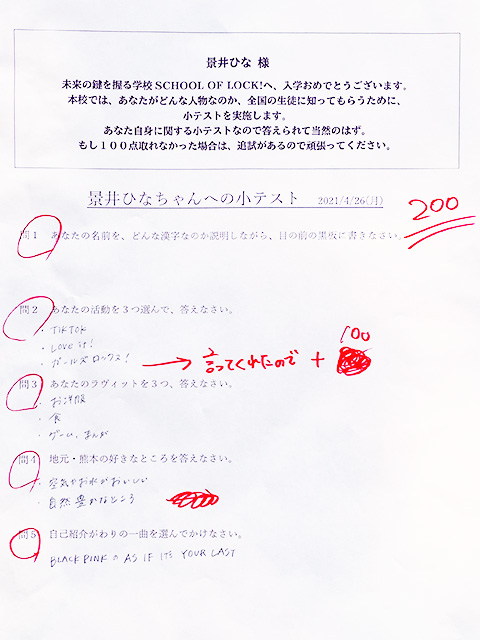 景井ひな 様
未来の鍵を握る学校SCHOOL OF LOCK!へ、入学おめでとうございます。
本校では、あなたがどんな人物なのか、全国の生徒に知ってもらうために、
小テストを実施します。
あなた自身に関する小テストなので答えられて当然のはず。
もし100点取れなかった場合は、追試があるので頑張ってください。
景井ひなちゃんへの小テスト 2021/4/26(月)
200
問1 あなたの名前を、どんな漢字なのか説明しながら、目の前の黒板に書きなさい。
問2 あなたの活動を3つ選んで、答えなさい。
・TIKTOK
・Love it!
・ガールズロックス! → 言ってくれたので + 100
問3 あなたのラヴィットを3つ、答えなさい。
・お洋服
・食
・ゲーム、まんが
問4 地元・熊本の好きなところを答えなさい。
・空気やお水がおいしい
・自然豊かなところ
問5 自己紹介がわりの一曲を選んでかけなさい。
BLACKPINKの AS IF ITS YOUR LAST